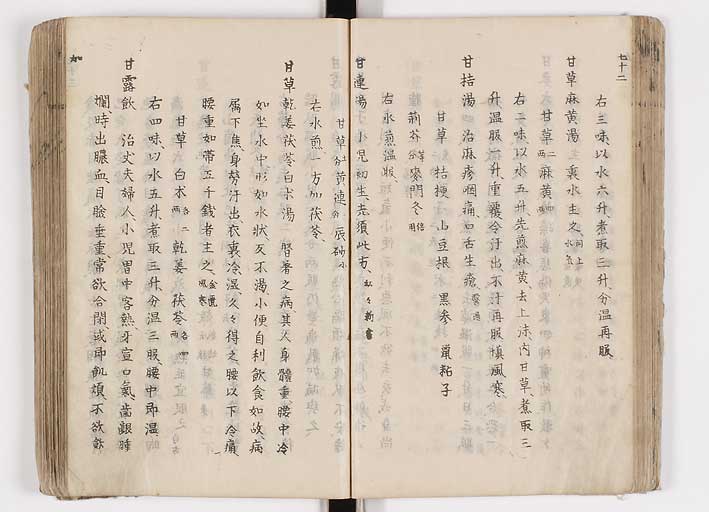 七十二
右三味以水六升煮取三升分温再服
甘草麻黄湯 裏水主之 同上 水気
甘草二両 麻黄四両
右二味以水五升先煎麻黄去上沫内甘草煮取三
升温服一升重覆令汗出不汗再服慎風寒
甘桔湯 治麻疹咽痛口舌生瘡
甘草 桔梗 山豆根 黒参 鼠粘子
荊芥 麦門冬
右水煎温服
甘連湯 小児初生先須此方
甘草 黄連 辰砂
右水煎一方加茯苓
甘草乾姜茯苓白朮湯 腎着之病其人身體重腰中冷
如坐水中形如水状反不渇小便自利飲食如故病
属下焦身勞汗出衣裏冷湿久々得之腰以下冷痛
腰重如帯五千銭者主之 金匱
甘草 白朮各二両 乾姜 茯苓各四両
右四味以水五升煮取三升分温三服腰中即温
甘露飲 治丈夫婦人小児胃中客熱牙宣口氣歯齦腫
爛時出膿血目瞼垂重常欲合閉或即飢煩不欲飲